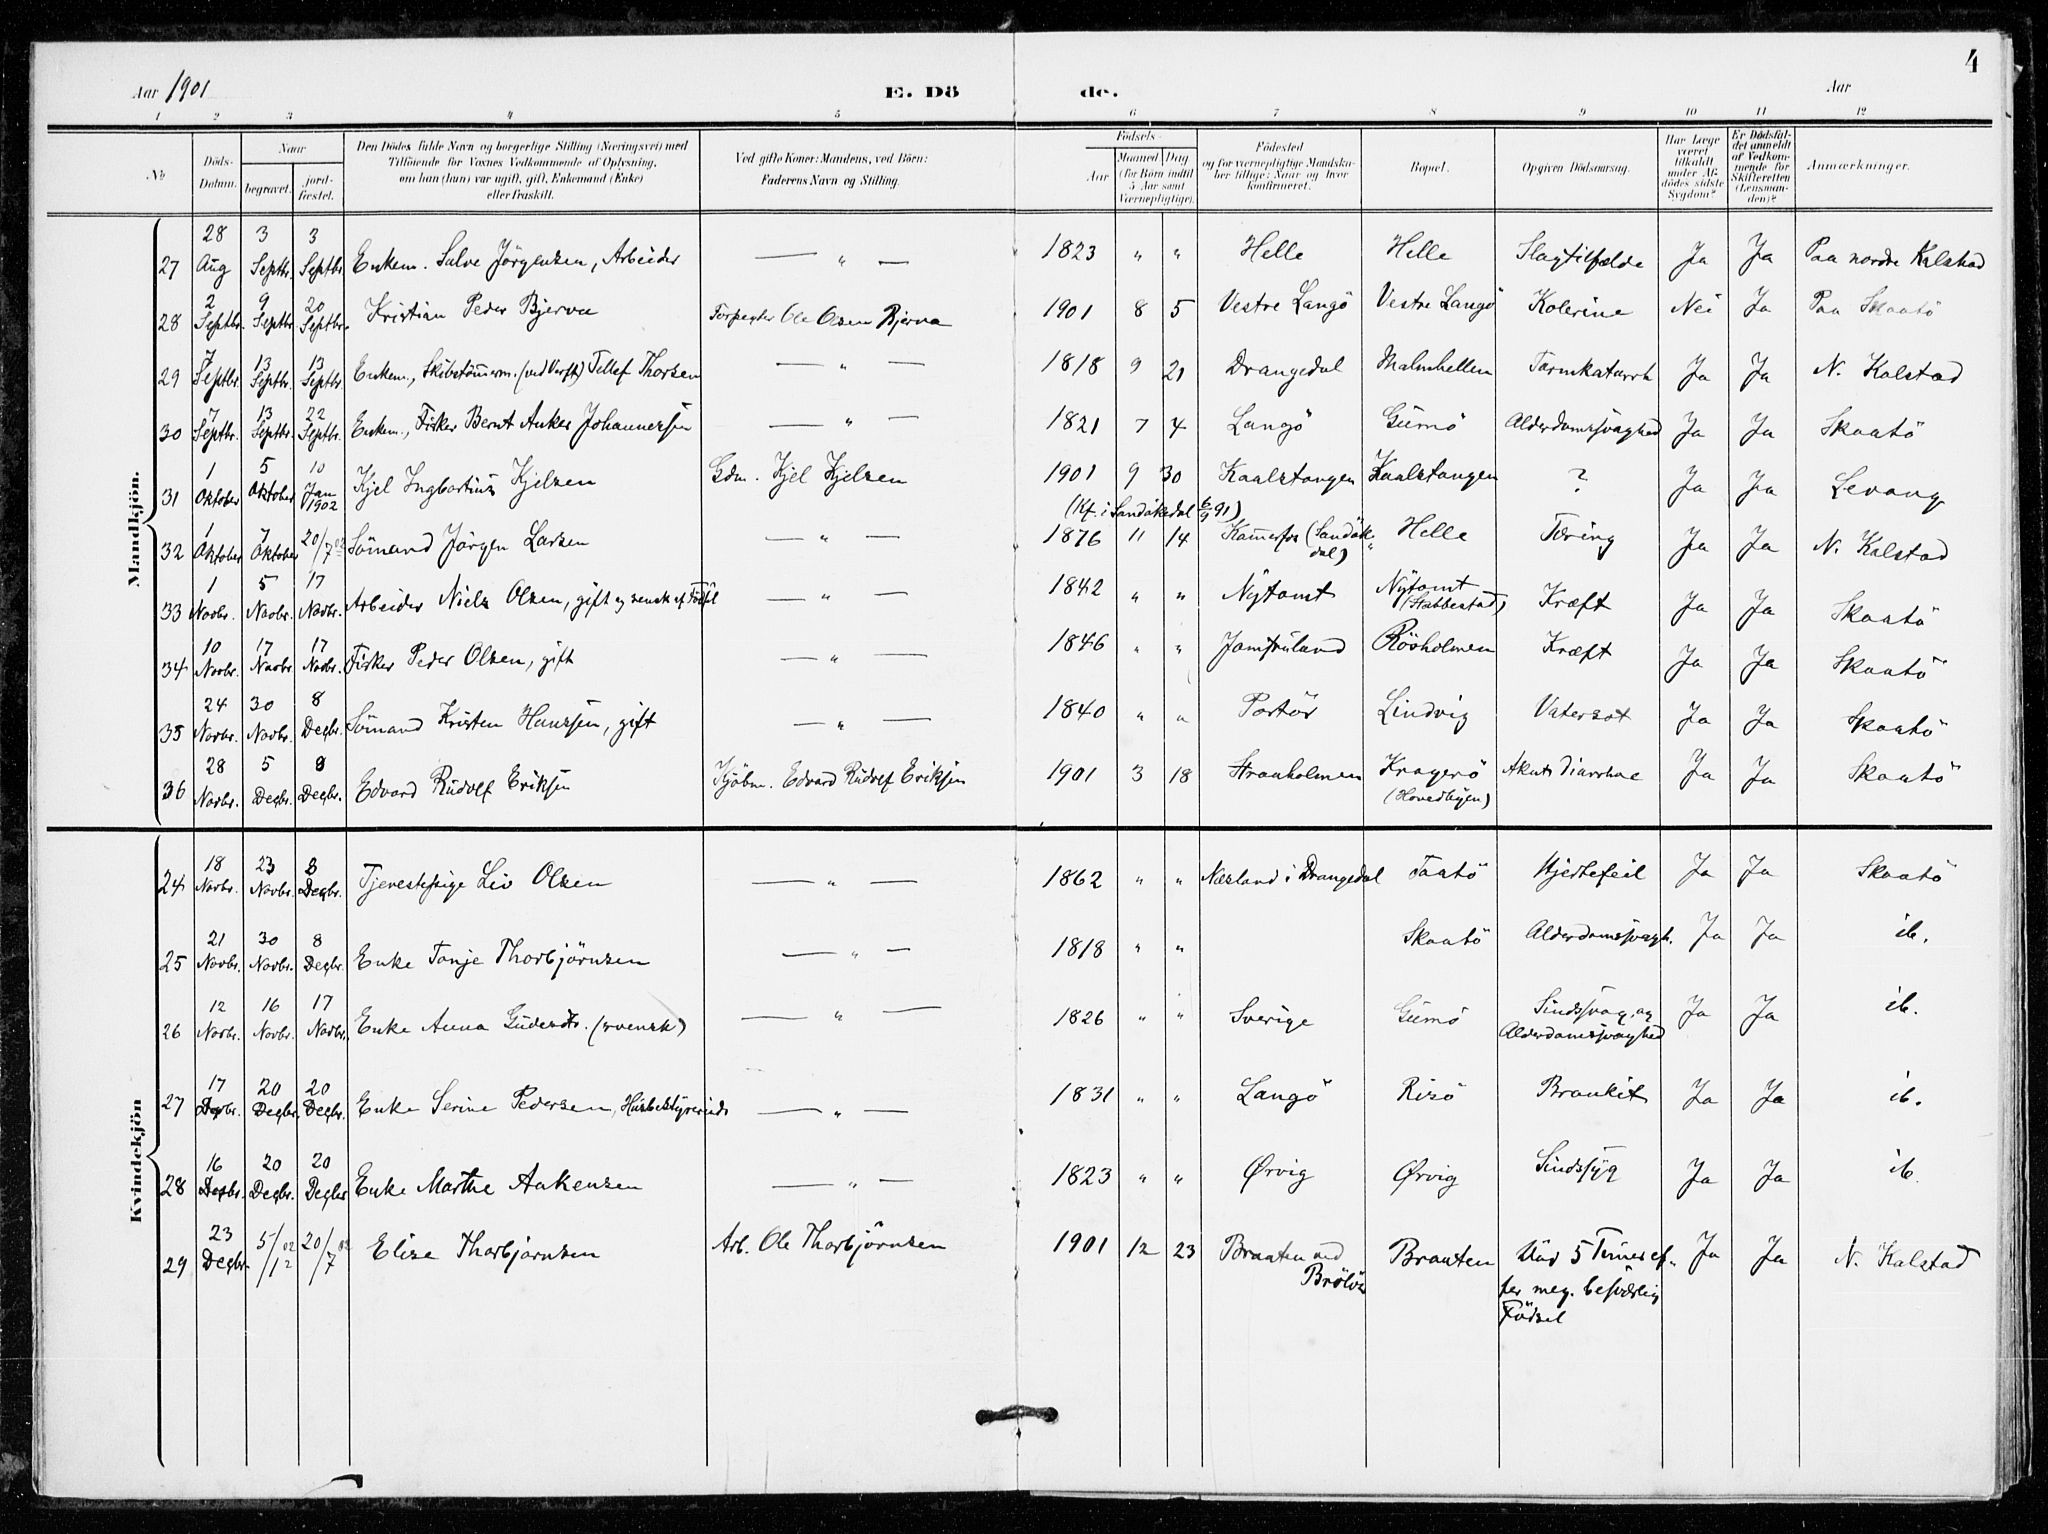 4
Aar 1901 E. Dö de. Aar
1 2 3 4 5 6 7 8 9 10 11 12
No Döds-Datum. Naar begravet. jord-fæstet. Den Dödes fulde Navn og borgerlige Stilling (Næringsvei) med Tilföiende for Voxnes Vedkommende af Oplysning, om han (hun) var ugift, gift, Enkemand (Enke) eller fraskilt. Ved gifte Koner: Mandens, ved Börn: Faderens Navn og Stilling. Födsels- Aar Maaned Dag (for Börn indtil 5 Aar samt Værnepligtige). Födested og for værnepligtige Mandskaber tillige: Naar og hvor konfirmeret. Bopæl. Opgiven Dödsaarsag. Har Læge været tilkaldt under Afdödes sidste Sygdom? Er Dödsfaldet anmeldt af Vedkommende for Skifteretten (Lensmanden)? Anmærkninger.
Mandkjön.
27 28 Aug 3 Septbr. 3 Septbr. Enkem. Salve Jörgensen, Arbeider — „ — 1823 „ „ Helle Helle Slagtilfælde Ja Ja Paa nordre Kalstad
28 2 Septbr. 9 Septbr. 20 Septbr. Kristian Peder Bjerva Forpagter Ole Olsen Bjerva 1901 8 5 Vestre Langö Vestre Langö Kolerine Nei Ja Paa Skaatö
29 7 Septbr. 13 Septbr. 13 Septbr. Enkem., Skibstömmerm. (ved Værft) Tellef Thorsen — „ — 1818 9 21 Drangedal Malmhellen Tarmkatarrh Ja Ja N. Kalstad
30 7 Septbr. 13 Septbr. 22 Septbr. Enkem., Fisker Bernt Anker Johannessen — „ — 1821 7 4 Langö Gumö Alderdomssvaghed Ja Ja Skaatö
31 1 Oktober 5 Oktober 10 Jan 1902 Kjel Ingbartius Kjelsen Gdm. Kjel Kjelsen 1901 9 30 Kaalstangen Kaalstangen ? Ja Ja Levang
(Kf. i Sandökedal 6/9 91)
32 1 Oktober 7 Oktober 20/7 02 Sömand Jörgen Larsen — „ — 1876 11 14 Kammerfos (Sandökedal) Helle Tæring Ja Ja N. Kalstad
33 1 Novbr. 5 Novbr. 17 Novbr. Arbeider Niels Olsen, gift og svensk af Födsel — „ — 1842 „ „ Nytomt Nytomt (Stabbestad) Kræft Ja Ja Skaatö
34 10 Novbr. 17 Novbr. 17 Novbr. Fisker Peder Olsen, gift — „ — 1846 „ „ Jomfruland Rösholmen Kræft Ja Ja Skaatö
35 24 Novbr. 30 Novbr. 8 Decbr. Sömand Kristen Hanssen, gift — „ — 1840 „ „ Portör Lindvig Vatersot Ja Ja Skaatö
36 28 Novbr. 5 Decbr. 8 Decbr. Edvard Rudolf Eriksen Kjöbm. Edvard Rudolf Eriksen 1901 3 18 Straaholmen Kragerö (Hovedbyen) Akut Diarrhoe Ja Ja Skaatö
Kvindekjön
24 18 Novbr. 23 Novbr. 8 Decbr. Tjenestepige Liv Olsen — „ — 1862 „ „ Næsland i Drangedal Taatö Hjertefeil Ja Ja Skaatö
25 21 Novbr. 30 Novbr. 8 Decbr. Enke Tonje Thorbjörnsen — „ — 1818 „ „ Skaatö Alderdomssvagh. Ja Ja ib.
26 12 Novbr. 16 Novbr. 17 Novbr. Enke Anna (svensk) — „ — 1826 „ „ Sverige Gumö Sindssvag, og Alderdomssvaghed Ja Ja ib.
27 17 Decbr. 20 Decbr. 20 Decbr. Enke Serine Pedersen, Husbestyrerinde — „ — 1831 „ „ Langö Risö Bronkit Ja Ja ib.
28 16 Decbr. 20 Decbr. 20 Decbr Enke Marthe Aakensen — „ — 1823 „ „ Ørvig Ørvig Sindssyg Ja Ja ib
29 23 Decbr. 5/1 02 20/7 02 Elise Thorbjörnsen Arb. Ole Thorbjörnsen 1901 12 23 Braaten ved Braaten 5 Timer efter meg. besværlig Födsel Ja Ja N. Kalstad